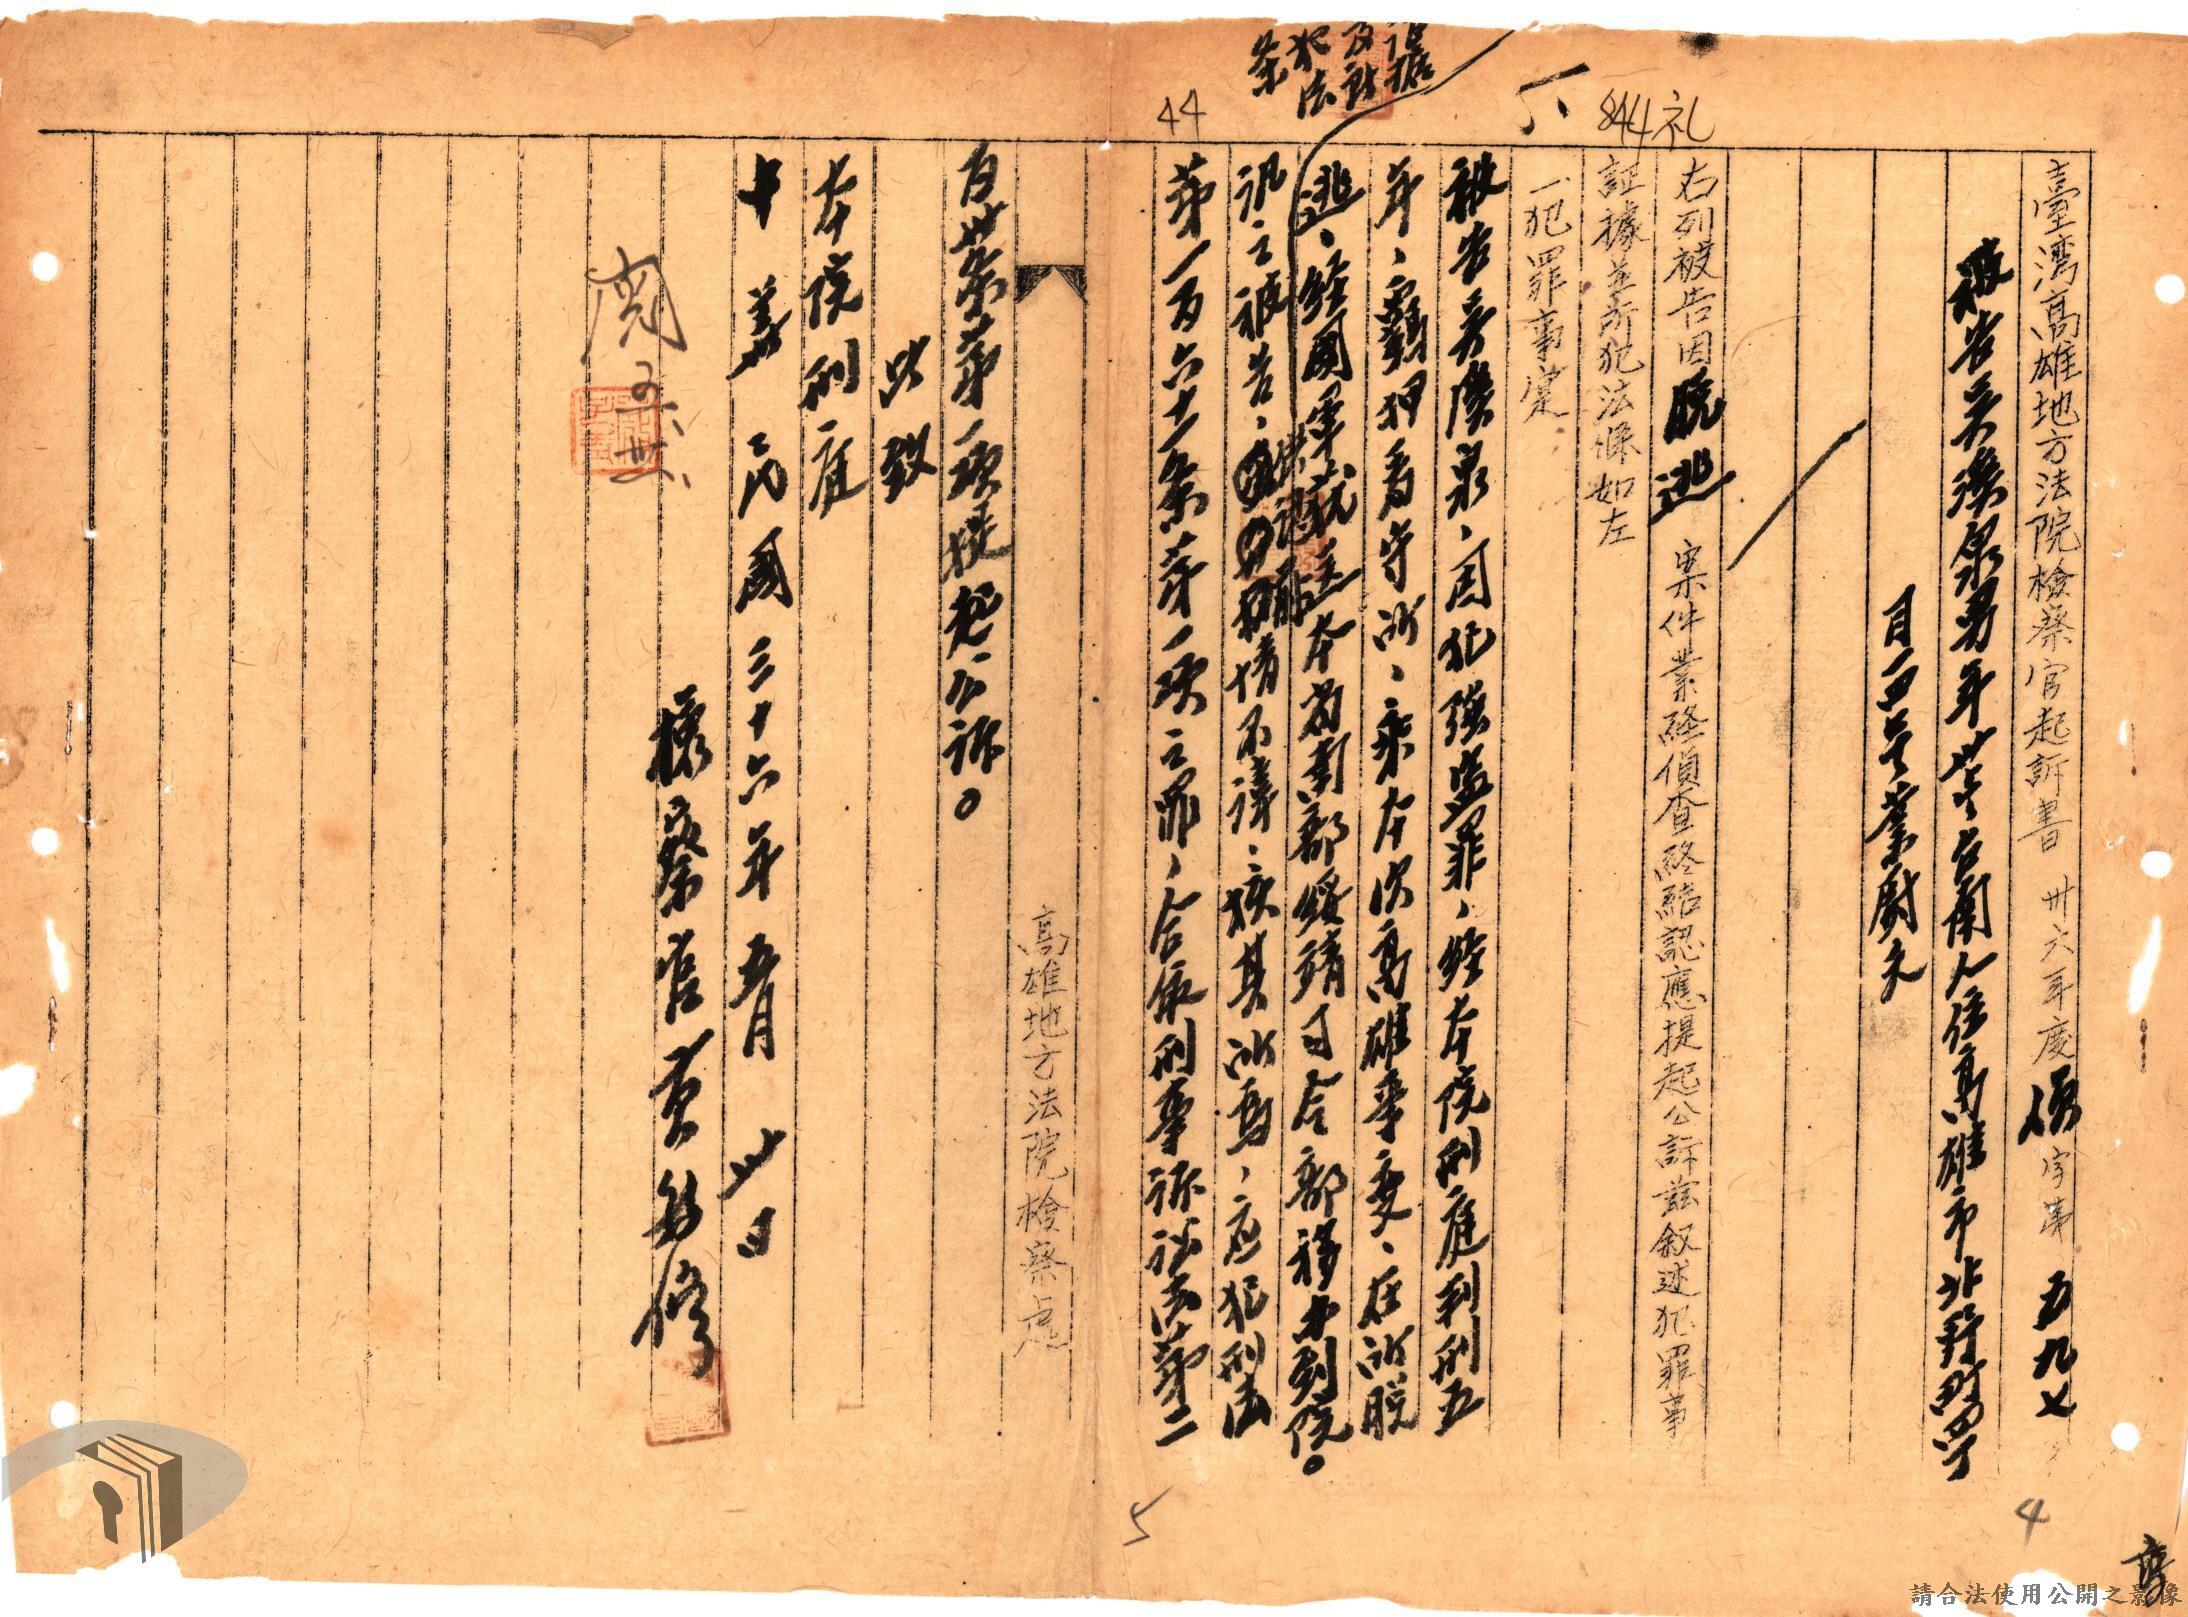 臺灣高雄地方法院檢察官起訴書 卅六年度偵字第五九七
被告吳溪泉男年廿 台南人住高雄市北野町四丁
目一四号業廚夫
右列被告因脫逃 案件業經偵查終結認應提起公訴茲叙述犯罪事
証據並所犯法條如左
一犯罪事實
被告吳溪泉、因犯強盜罪、經本院刑庭判刑五
年、羈押看守所、乘本次高雄事變、在所脫
逃、經國軍就 本省南部綏靖司令部移 到院。
証據
及所
犯法
条
訊之被告、供認脫 情不諱、核其所為、應犯刑法
第一百六十一条第一項之罪、合依刑事訴訟法第二
高雄地方法院檢察處
百卅条第一項提起公訴。
此致
本院刑庭
中華民國三十六年五月廿 日
檢察官
閱
五、卅、
844
礼
44
4
5
請合法使用公開之影像